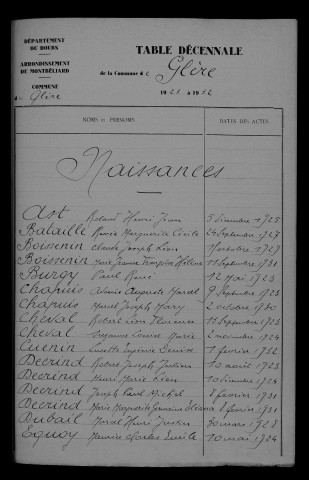 DÉPARTEMENT
DU DOUBS
ARRONDISSEMENT
DE MONTBÉLIARD
COMMUNE
Glère
TABLE DÉCENNALE
de la Commune de Glère
19 23 à 19 32
NOMS et PRÉNOMS DATES DES ACTES
Naissances
Ast Roland Henri Jean 5 décembre 1925
Bataille Marie Marguerite Cécile 24 septembre 1927
Boissenin Claude Joseph Léon 1 octobre 1929
Boissenin Marie Jeanne Françoise Hélène 11 septembre 1931
Burgy Paul René 12 mai 1923
Chapuis Auguste Marcel 9 septembre 1923
Chapuis Marcel Joseph Mary 2 octobre 1930
Cheval Robert Léon Florence 13 septembre 1923
Cheval Suzanne Louise Marie 2 novembre 1924
Cuenin Eugénie Denise 1 février 1932
Decrind Robert Joseph Justin 10 août 1923
Decrind Henri Marie Léon 10 décembre 1924
Decrind Joseph Paul Michel 8 février 1931
Decrind Marie Marguerite Germaine 8 février 1931
Dubail Marcel Henri Justin 30 mars 1928
Equoy Maurice Charles Emile 10 mai 1924